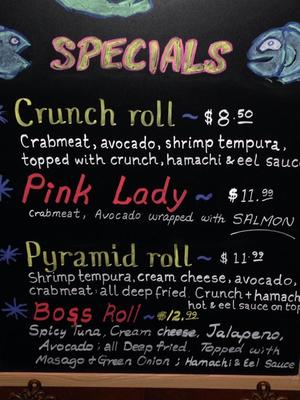 SPECIALS
Crunch roll ~ $8.50
Crabmeat, avocado, shrimp tempura,
topped with crunch, hamachi & eel sauce
Pink Lady ~ $11.99
Crabmeat, Avocado wrapped with SALMON
Pyramid roll ~ $11.99
Shrimp tempura, cream cheese, avocado,
crabmeat; all deep fried. Crunch + hamach
hot & eel sauce on top
Boss Roll ~ $12.99
Spicy Tuna, Cream cheese, Jalapeno,
Avocado; all Deep fried. Topped with
Masago + Green Onion; Hamachi & Eel Sauce